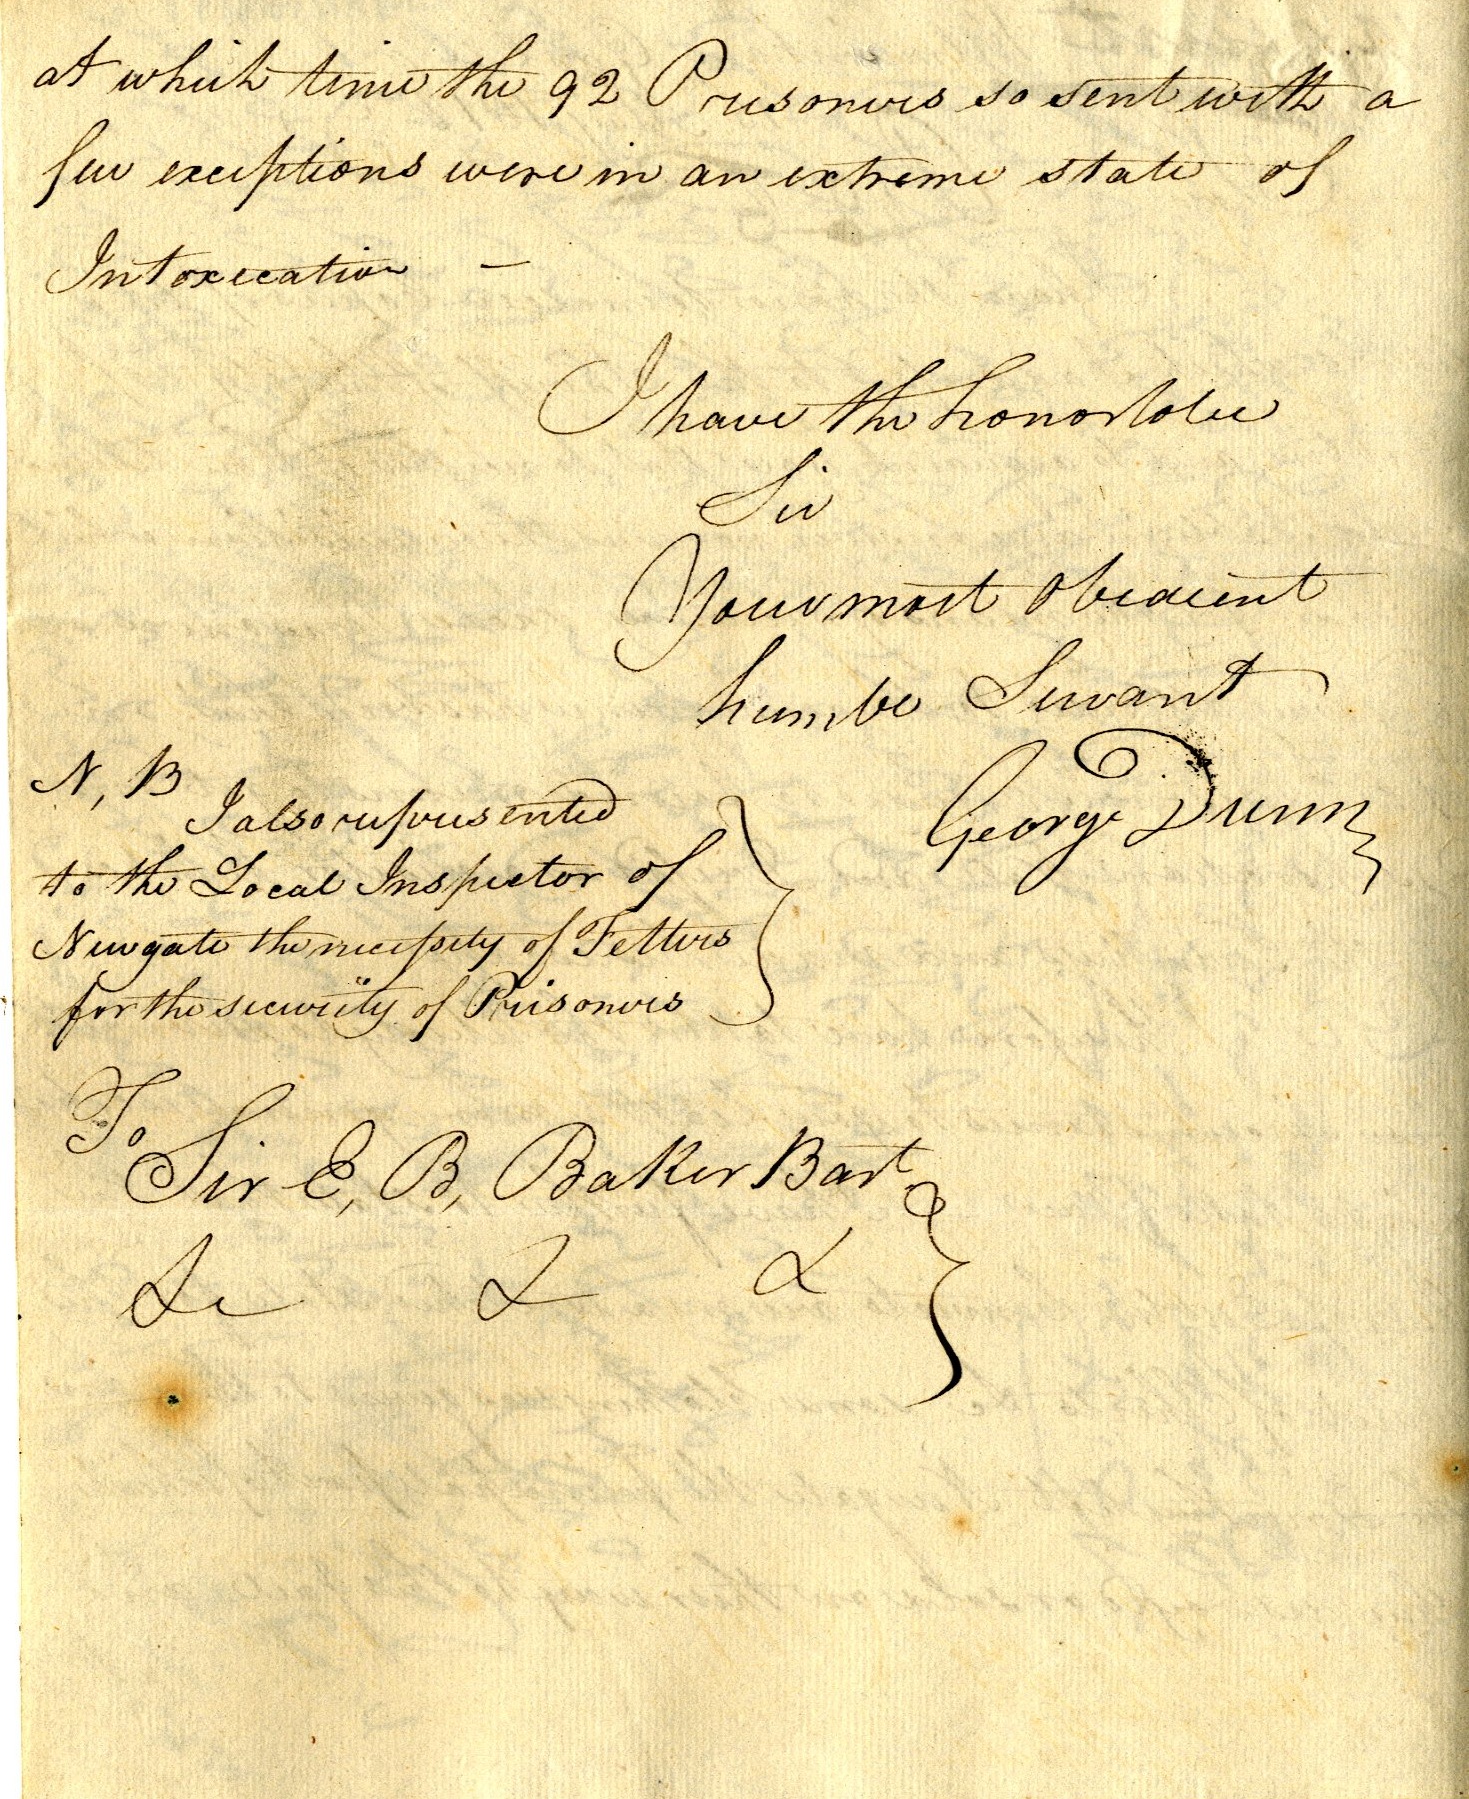 at which time the 92 Prisoners so sent with a
few exceptions were in an extreme state of
Intoxication —
I have the honor to be
Sir
Your most Obedient
humbe Servant
George Dunn
N, B
I also represented
to the Local Inspector of
Newgate the necessity of Fetters
for the security of Prisoners
To
Sir E, B, Baker Bart
&c & &